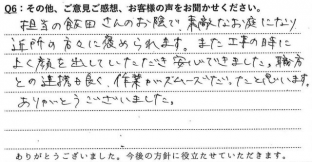 Q6：その他、ご意見ご感想、お客様の声をお聞かせください。
担当の飯田さんのお陰で素敵なお庭になり
近所の方々に褒められます。また工事の時に
よく顔を出していただき安心できました。職方
との連携も良く、作業がスムーズだったと思います。
ありがとうございました。
ありがとうございました。今後の方針に役立たせていただきます。